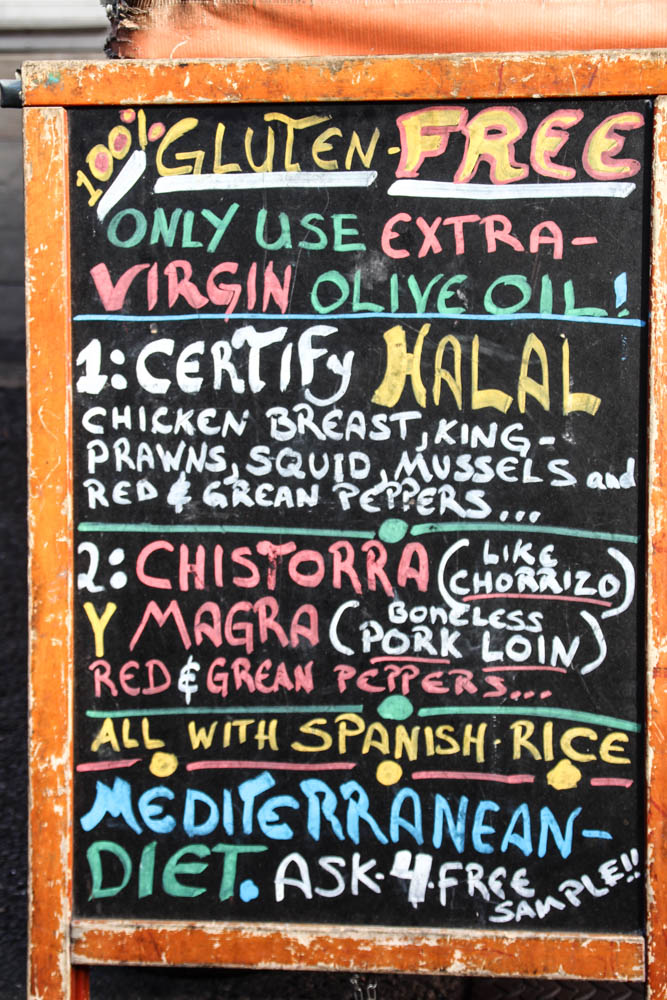 100% GLUTEN-FREE
ONLY USE EXTRA-
VIRGIN OLIVE OIL!
1: CERTIFY HALAL
CHICKEN BREAST, KING-
PRAWNS, SQUID, MUSSELS and
RED & GREAN PEPPERS...
2: CHISTORRA (LIKE CHORRIZO)
Y MAGRA (BONELESS PORK LOIN)
RED & GREAN PEPPERS...
ALL WITH SPANISH-RICE
MEDITERRANEAN-
DIET. ASK-4-FREE SAMPLE!!